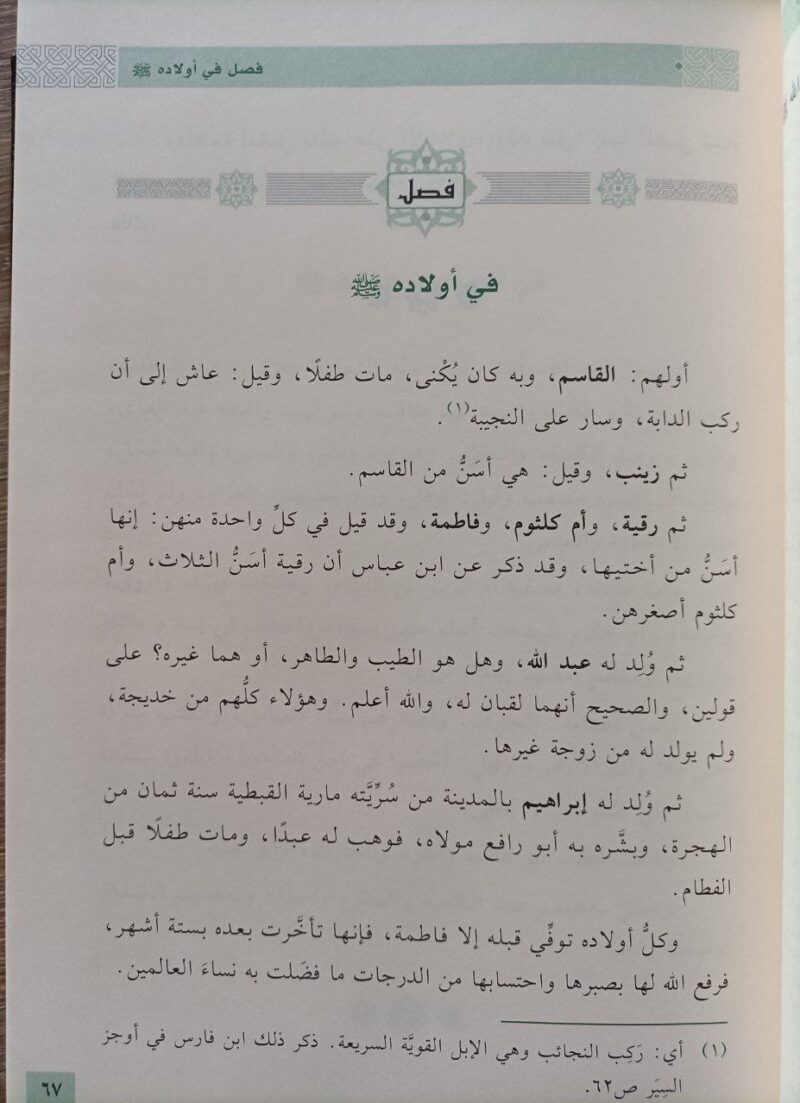 فصل في أولاده ﷺ
فصل
في أولاده ﷺ
أولهم: القاسم، وبه كان يُكْنى، مات طفلًا، وقيل: عاش إلى أن
ركب الدابة، وسار على النجيبة(١).
ثم زينب، وقيل: هي أسَنُّ من القاسم.
ثم رقية، وأم كلثوم، وفاطمة، وقد قيل في كلِّ واحدة منهن: إنها
أسَنُّ من أختيها، وقد ذكر عن ابن عباس أن رقية أسَنُّ الثلاث، وأم
كلثوم أصغرهن.
ثم وُلِد له عبد الله، وهل هو الطيب والطاهر، أو هما غيره؟ على
قولين، والصحيح أنهما لقبان له، والله أعلم. وهؤلاء كلُّهم من خديجة،
ولم يولد له من زوجة غيرها.
ثم وُلِد له إبراهيم بالمدينة من سُرِّيَّته مارية القبطية سنة ثمان من
الهجرة، وبشَّره به أبو رافع مولاه، فوهب له عبدًا، ومات طفلًا قبل
الفطام.
وكلُّ أولاده توفِّي قبله إلا فاطمة، فإنها تأخَّرت بعده بستة أشهر،
فرفع الله لها بصبرها واحتسابها من الدرجات ما فضَلت به نساءَ العالمين.
(١) أي: رَكِب النجائب وهي الإبل القويَّة السريعة. ذكر ذلك ابن فارس في أوجز
السِيَر ص٦٢.
٦٧